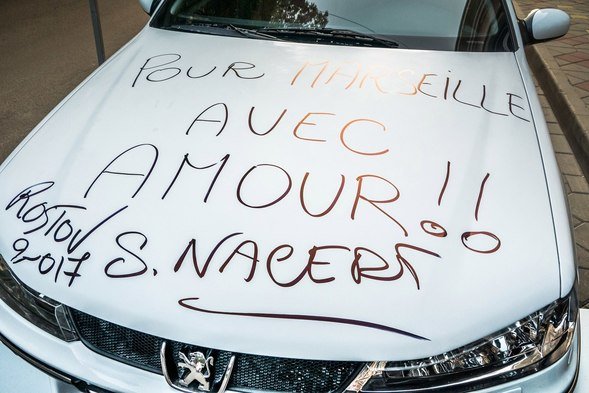 POUR MARSEILLE
AVEC
AMOUR!!
ROSTOV
2017
S. NACERI